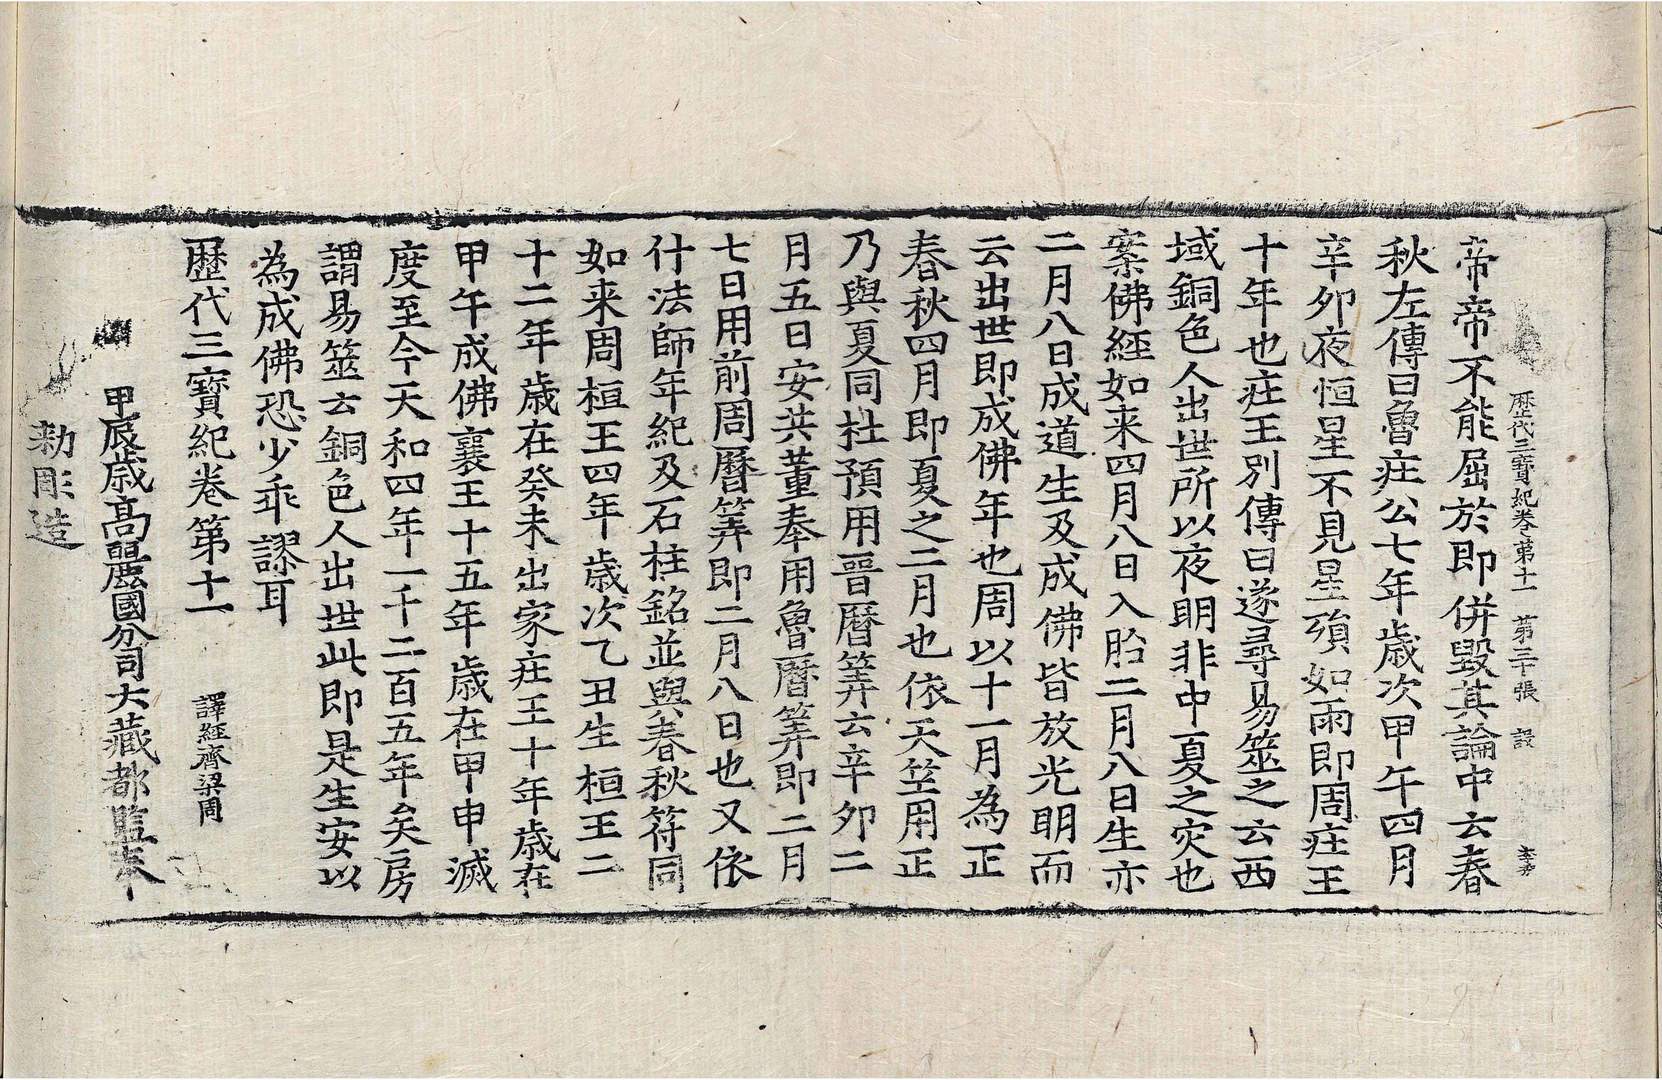 歷代三寶紀卷第十一 第三十張 設
帝帝不能屈於即併毀其論中云春
秋左傳曰魯庄公七年歲次甲午四月
辛夘夜恒星不見星殞如雨即周庄王
十年也庄王別傳曰遂尋易筮之云西
域銅色人出世所以夜明非中夏之灾也
案佛經如来四月八日入胎二月八日生亦
二月八日成道生及成佛皆放光明而
云出世即成佛年也周以十一月為正
春秋四月即夏之二月也依天竺用正
乃與夏同杜預用晉曆筭云辛夘二
月五日安共董奉用魯曆筭即二月
七日用前周曆筭即二月八日也又依
什法師年紀及石柱銘並與春秋符同
如来周桓王四年歲次乙丑生桓王二
十二年歲在癸未出家庄王十年歲在
甲午成佛襄王十五年歲在甲申滅
度至今天和四年一千二百五年矣房
謂易筮云銅色人出世此即是生安以
為成佛恐少乖謬耳
歷代三寶紀卷第十一 譯經齊梁周
甲辰歲高麗國分司大藏都監奉
勅彫造